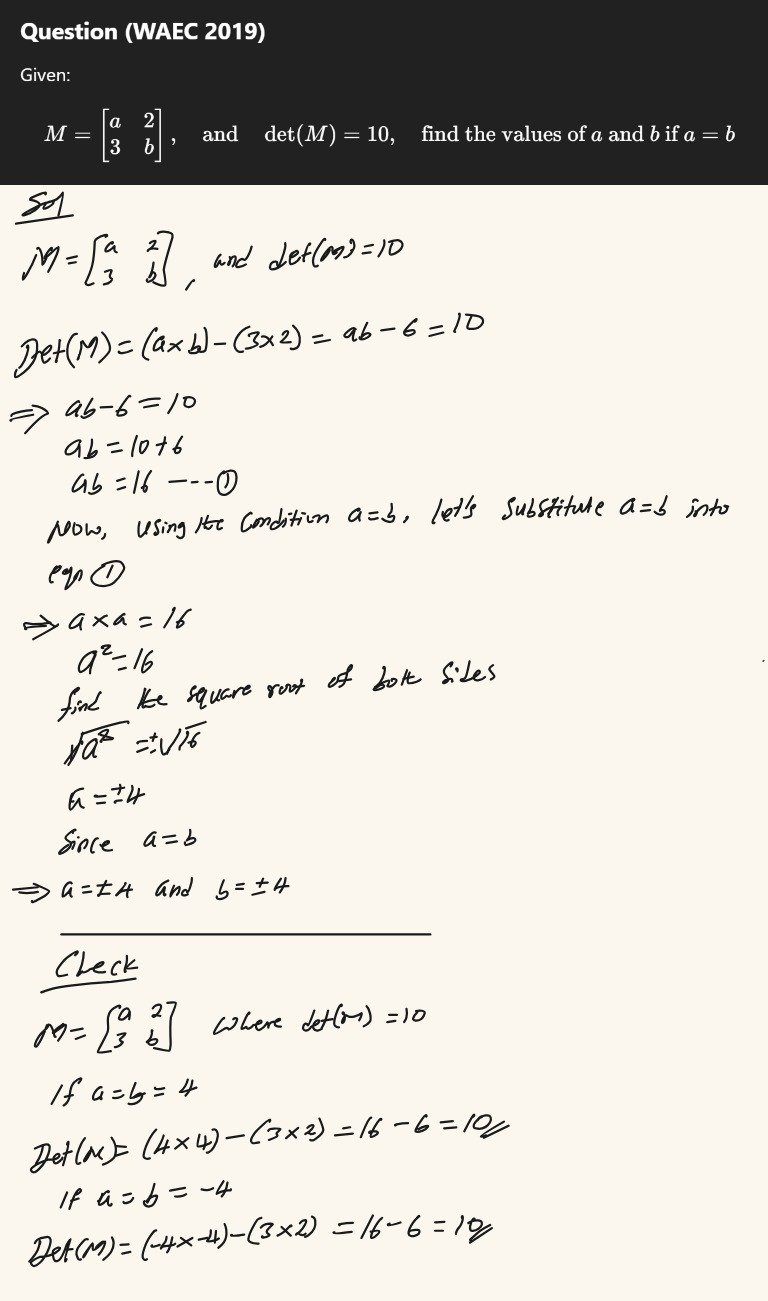 Question (WAEC 2019)
Given:
M = [a 2; 3 b], and det(M) = 10, find the values of a and b if a = b
Sol
M = [a 2; 3 b], and det(M) = 10
Det(M) = (a×b) - (3×2) = ab - 6 = 10
⇒ ab - 6 = 10
ab = 10 + 6
ab = 16 ---①
Now, using the condition a=b, let's substitute a=b into
eqn ①
⇒ a × a = 16
a² = 16
find the square root of both sides
√a² = ±√16
a = ±4
Since a = b
⇒ a = ±4 and b = ±4
Check
M = [a 2; 3 b] where det(M) = 10
If a = b = 4
Det(M) = (4×4) - (3×2) = 16 - 6 = 10
If a = b = -4
Det(M) = (-4×-4) - (3×2) = 16 - 6 = 10